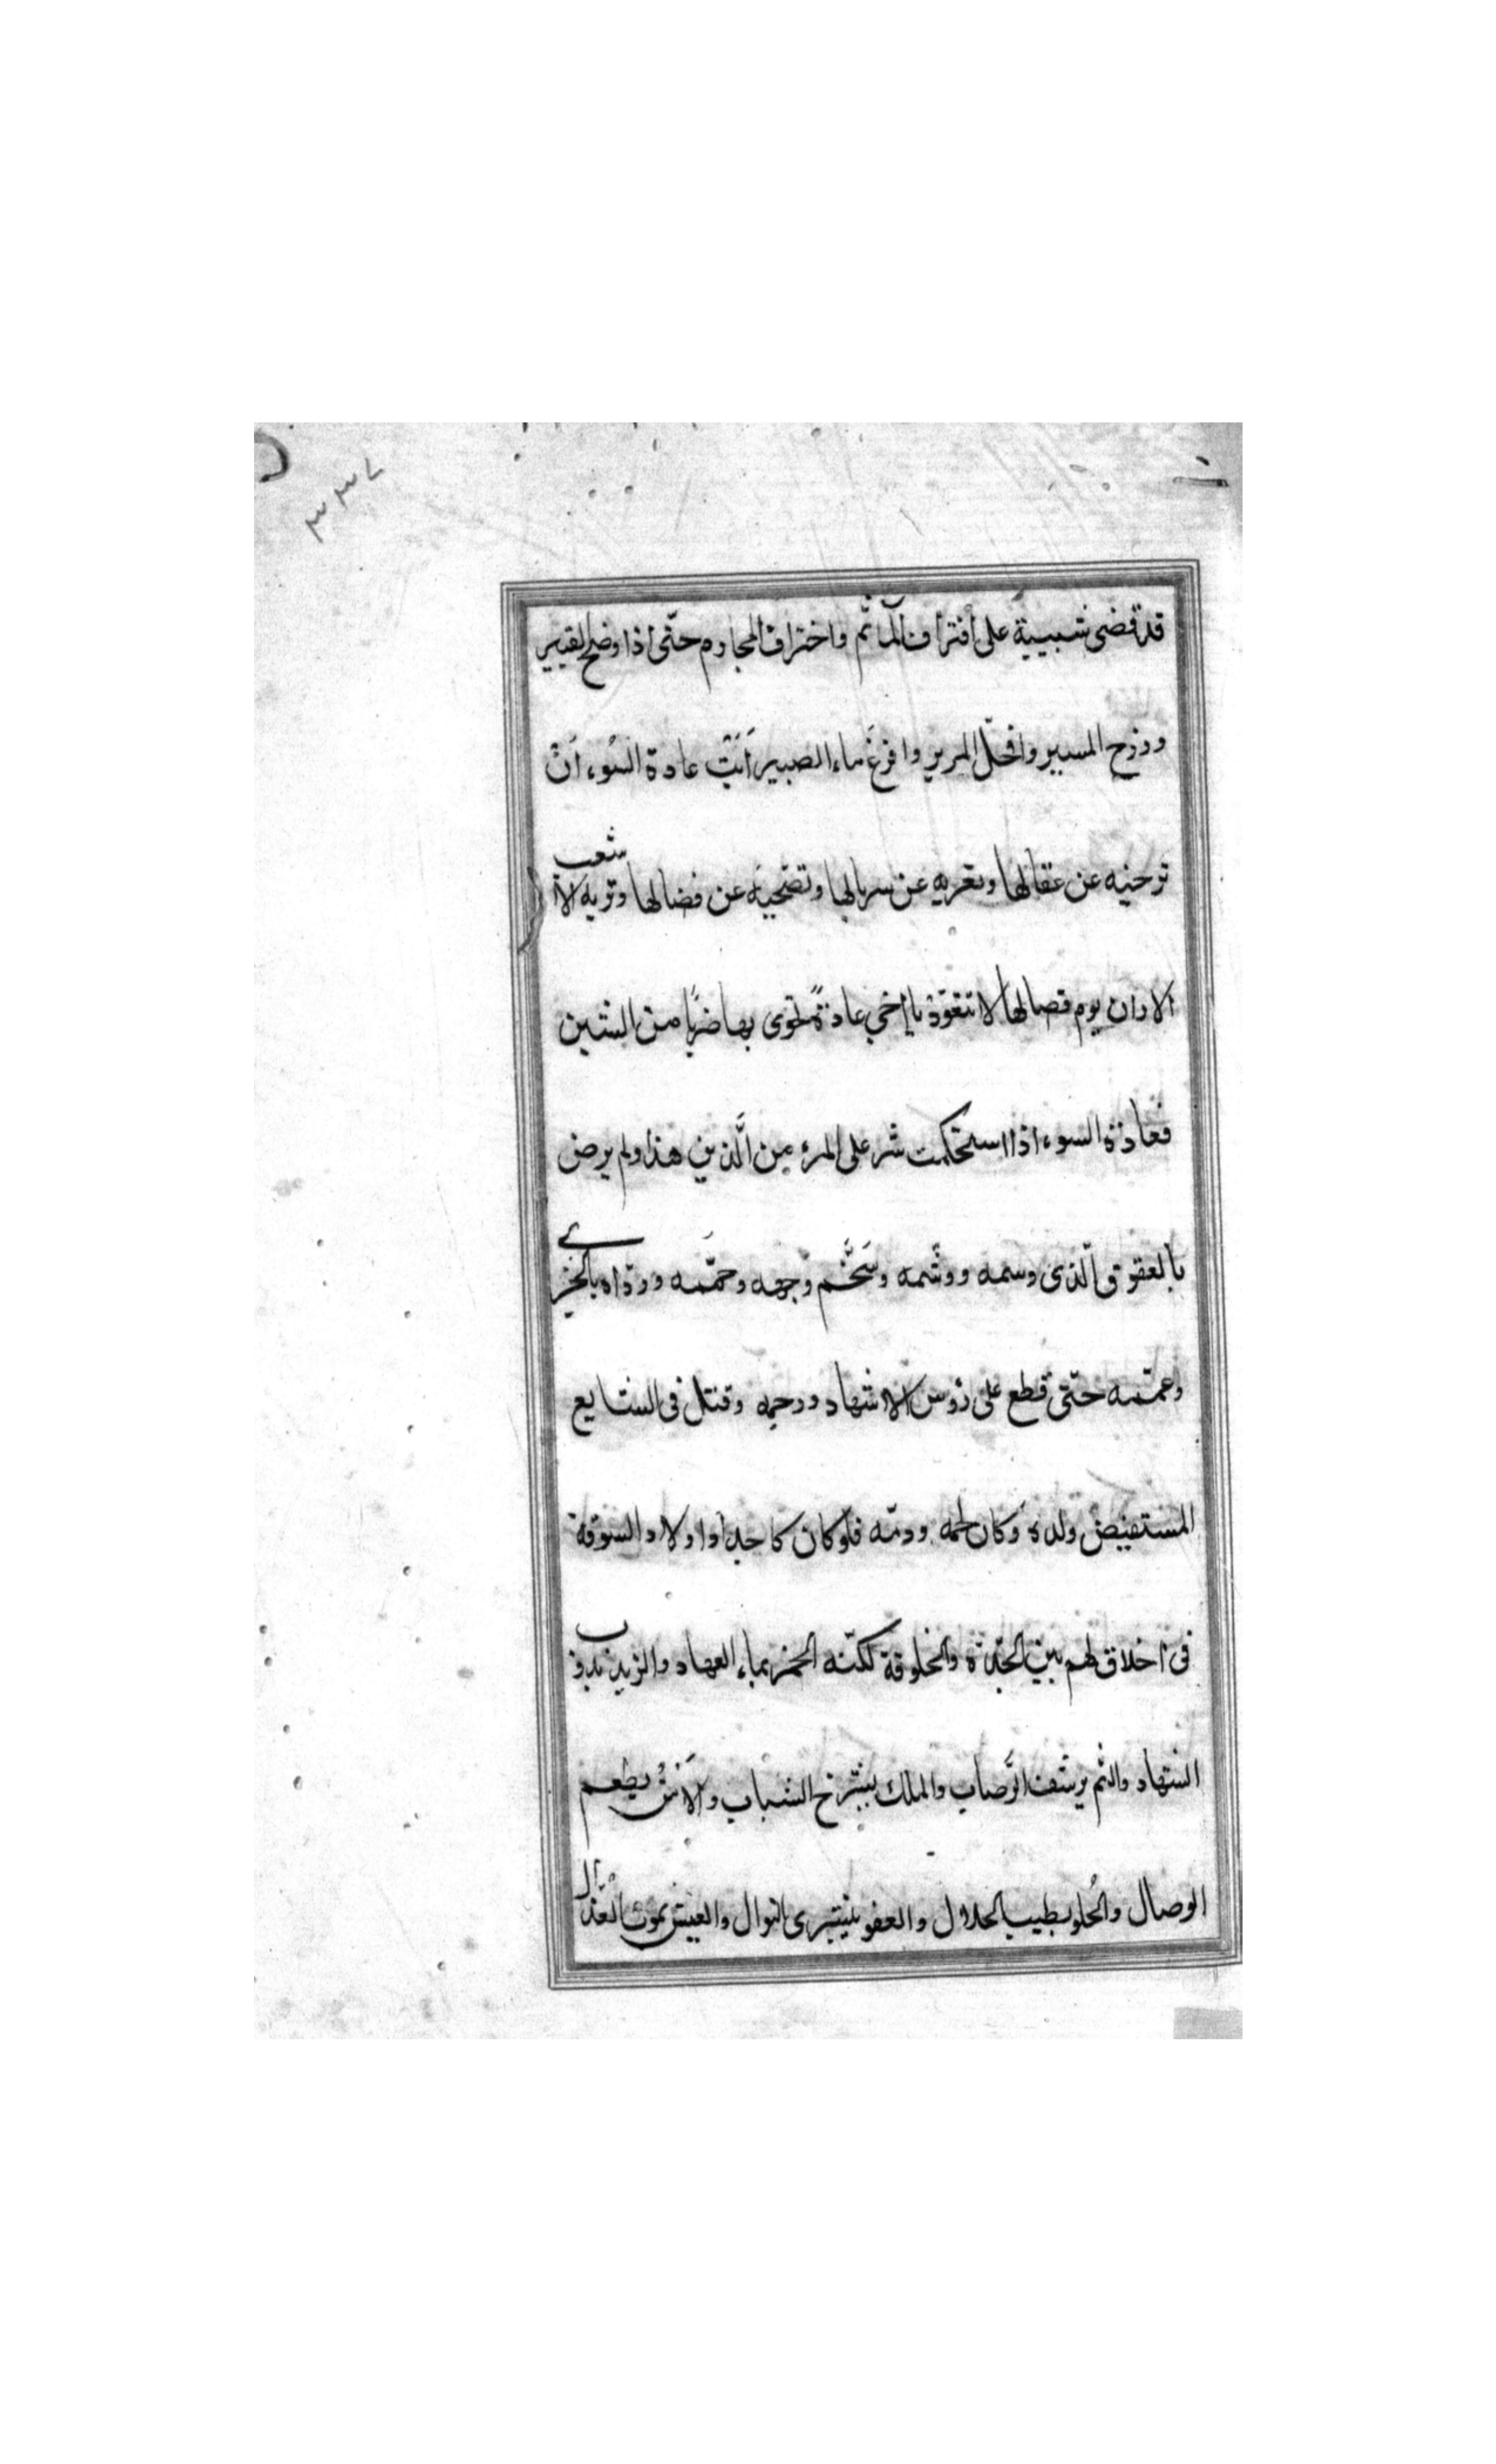 ٣٣٧
قد قضى شبيبة على اقتراف المآثم واختراق المجارم حتى اذا وضح القيير
ورزح المسير وانحل المرير وافرغ ماء الصبير أَبَتْ عادة السُوء أنْ
ترخيه عن عقالها وتعريه عن سربالها وتضحيه عن فضالها وتريه الا
شعب
الاوان يوم فصالها لا تتعوّد يا أخي عادةً تحوى بها ضربًا من الشين
فعادة السوء اذا استحكمت شر على المرء من الَّذين هذا ولم يرض
بالعقوق الّذى وسمه ووشمه وسَخَّم وجهه وحمّمه وردّاه بالخزي
وعمّمه حتّى قطع على رؤس الاشهاد ورحمه وقتل فى الشايع
المستفيض ولده وكان لحمه ودمّه فلو كان كاحد اولاد السوقة
فى اخلاق لهم بين الجدّة والخلوقة لكنّه الخمر بماء العهاد والزبد بذوب
الشهاد والثم يرشف الرَّضاب والملك بشرخ الشباب والأنس بطعم
الوصال والحُلو بطيب الحلال والعفو بشرى النوال والعيش بموت العُذّال